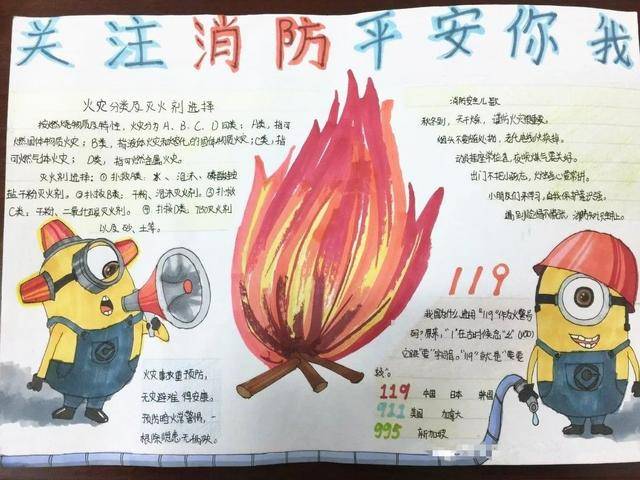 关注消防平安你我
火灾分类及灭火剂选择
按燃烧物质及特性，火灾分为A、B、C、D四类：A类，指可
燃固体物质火灾；B类，指液体火灾和熔化的固体物质火灾；C类，指
可燃气体火灾；D类，指可燃金属火灾。
灭火剂选择：①扑救A类：水、泡沫、磷酸铵
盐干粉灭火剂。②扑救B类：干粉、泡沫灭火剂。③扑救
C类：干粉、二氧化碳灭火剂。④扑救D类：7150灭火剂
以及砂、土等。
消防安全儿歌
秋冬到，天干燥，谨防火灾很重要。
烟头不要随处抛，老化电线快换掉。
出门不把小孩忘，
小朋友们来学习，自我保护意识强。
119
我国为什么选用"119"作为火警号
码？原来，"1"在古时候念"幺"(yao)
它跟"要"字同音。"119"就是"要要
救"。
119 中国 日本 韩国
911 美国 加拿大
995 新加坡
火灾事故重预防，
无灾避难得安康。
预防时火常警惕，
根除隐患无伤